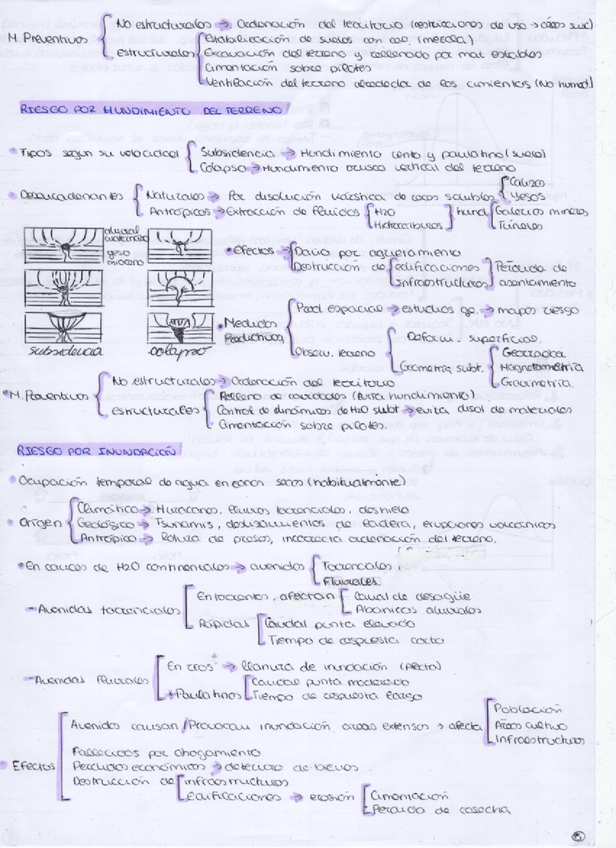 M. Preventivos
No estructurales → Ordenación del territorio (restricciones de uso →
estructurales
Estabilización de suelos con cao. (mezcla)
Excavación del terreno y rellenado por mat estables
Cimentación sobre pilotes
del terreno alrededor de los cimientos (No humed)
RIESGO POR HUNDIMIENTO DEL TERRENO
• Tipos según su velocidad
Subsidencia → Hundimiento lento y paulatino (suelo)
Colapso → Hundimiento brusco vertical del terreno
• Desencadenantes
Naturales → Por disolución kárstica de rocas solubles
Calizas
yesos
Antrópicos → Extracción de fluidos
H2O
Hidrocarburos
hund
Galerías mineras
Túneles
aluvial
cuaternario
yeso
mioceno
subsidencia
colapso
• Efectos
Daño por agrietamiento
Destrucción de
edificaciones
infraestructuras
Pérdida de
asentamiento
• Métodos
Predictivos
Pred. espacial → estudios go. → mapas riesgo
Observ. terreno
Deform. superficial.
Geometría subt.
Georradar
Magnetometría
Gravimetría.
• M. Preventivos
No estructurales → Ordenación del territorio
estructurales
Relleno de cavidades (Evita hundimiento)
Control de dinámicas de H2O subt → evita disol de materiales
Cimentación sobre pilotes.
RIESGO POR INUNDACIÓN
• Ocupación temporal de agua en zonas secas (habitualmente)
• Origen
Climático → Huracanes, lluvias torrenciales, deshielo
Geológico → Tsunamis, deslizamientos de ladera, erupciones volcánicas
Antrópico → Rotura de presas, incorrecta ordenación del terreno.
• En cauces de H2O continentales → avenidas
Torrenciales.
Fluviales.
- Avenidas torrenciales
En torrentes, afectan
Canal de desagüe
Abanicos aluviales
Rápidas
Caudal punta elevado
Tiempo de respuesta corto
- Avenidas fluviales
En ríos → llanura de inundación (afecta)
+ Paulatinas
Caudal punta moderado
Tiempo de respuesta largo
• Efectos
Avenidas causan/Provocan inundación áreas extensas → afecta
Población
Áreas cultivo
Infraestructuras
Fallecidos por ahogamiento
Pérdidas económicas → deterioro de bienes
Destrucción de
infraestructuras
Edificaciones → erosión
Cimentación
Pérdida de cosecha